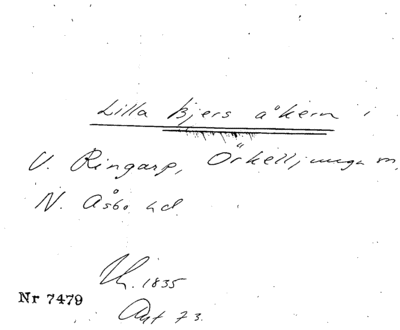 Lilla Bjers åkern i
V. Ringarp, Örkelljunga m,
N. Åsbo hd.
1835
Nr 7479
73.